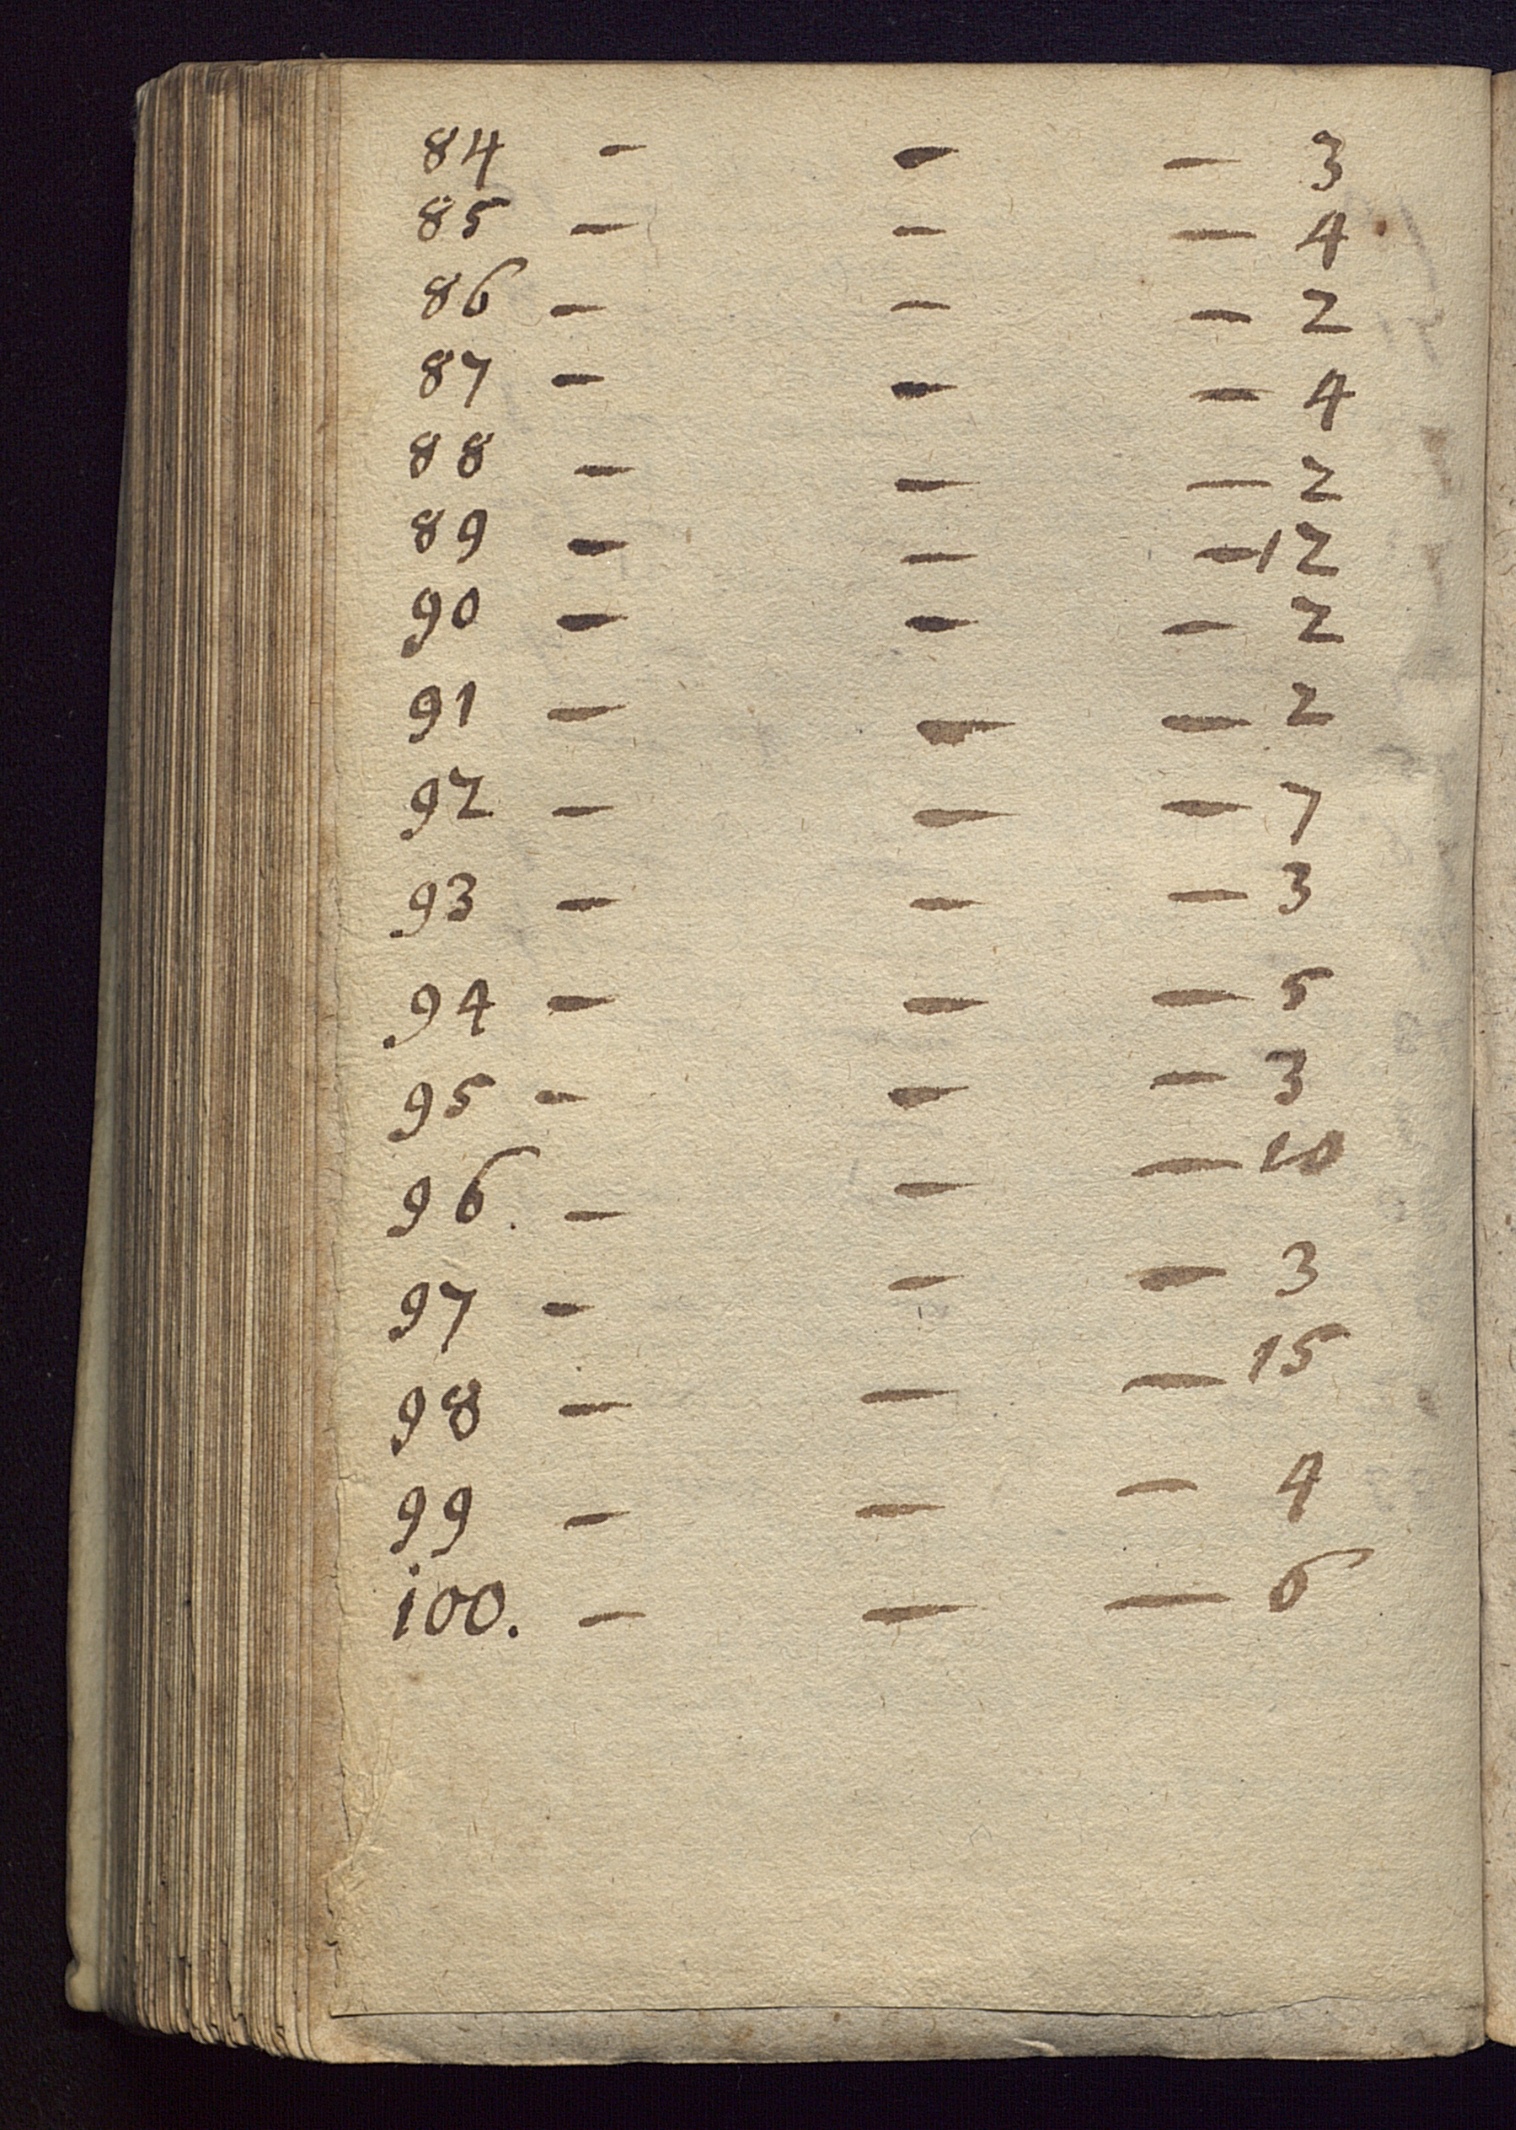 84 - - - 3
85 - - - 4
86 - - - 2
87 - - - 4
88 - - - 2
89 - - - 12
90 - - - 2
91 - - - 2
92 - - - 7
93 - - - 3
94 - - - 5
95 - - - 3
96. - - - 10
97 - - - 3
98 - - - 15
99 - - - 4
100. - - - 6